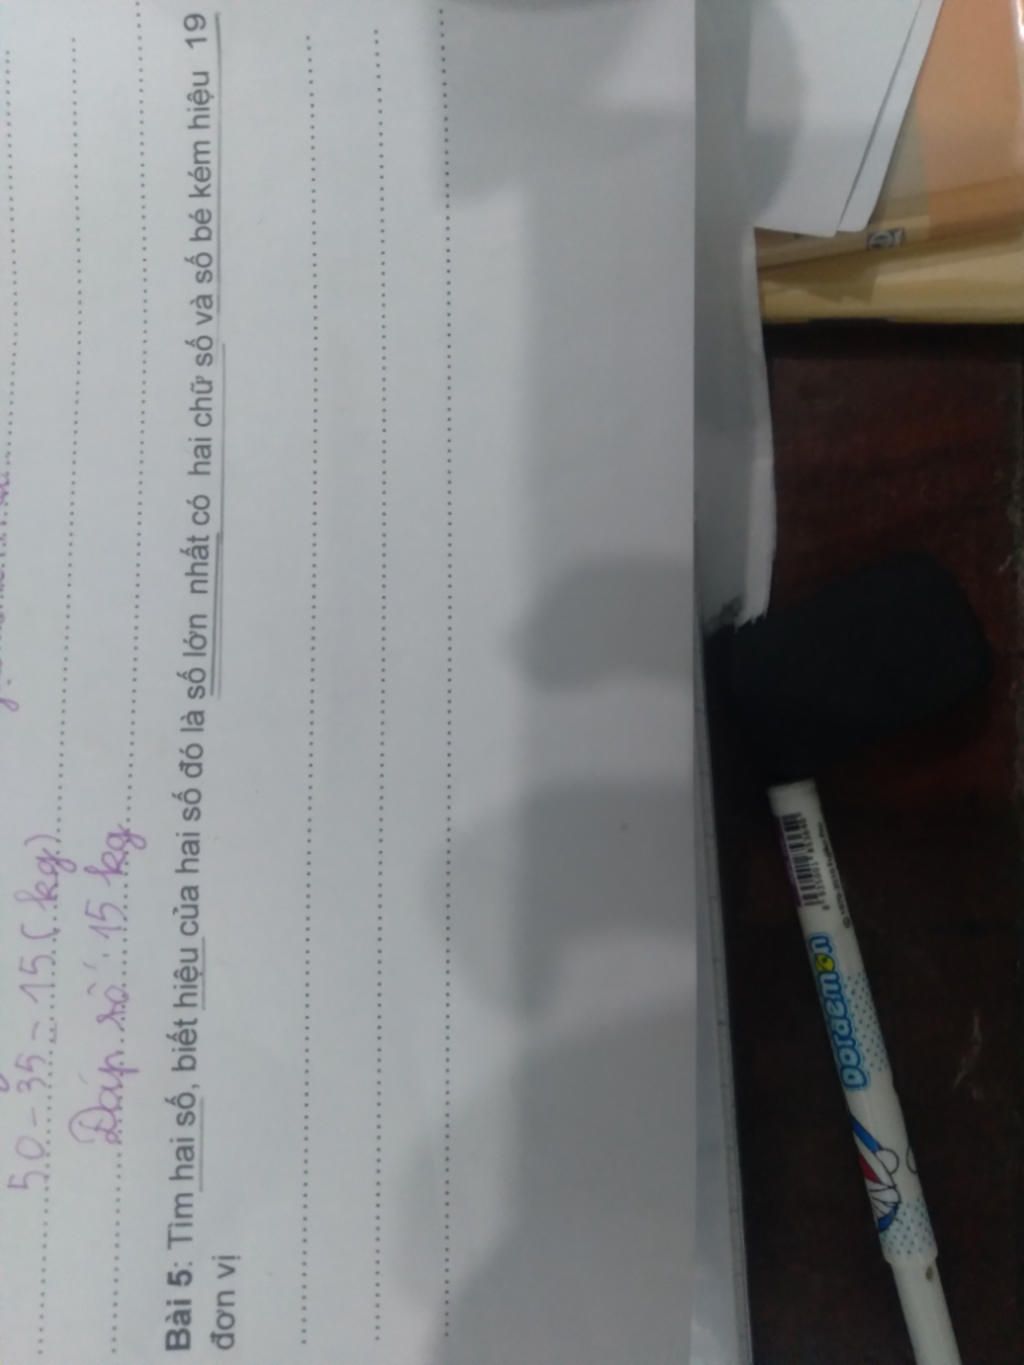 50 - 35 = 15 (kg)
Đáp số: 15 kg
Bài 5: Tìm hai số, biết hiệu của hai số đó là số lớn nhất có hai chữ số và số bé kém hiệu 19
đơn vị
Doraemon